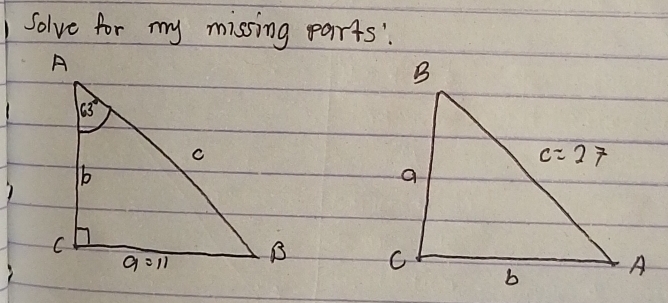 Solve for my missing parts:
A
63°
b
c
C
a=11
B
B
a
c=27
C
b
A